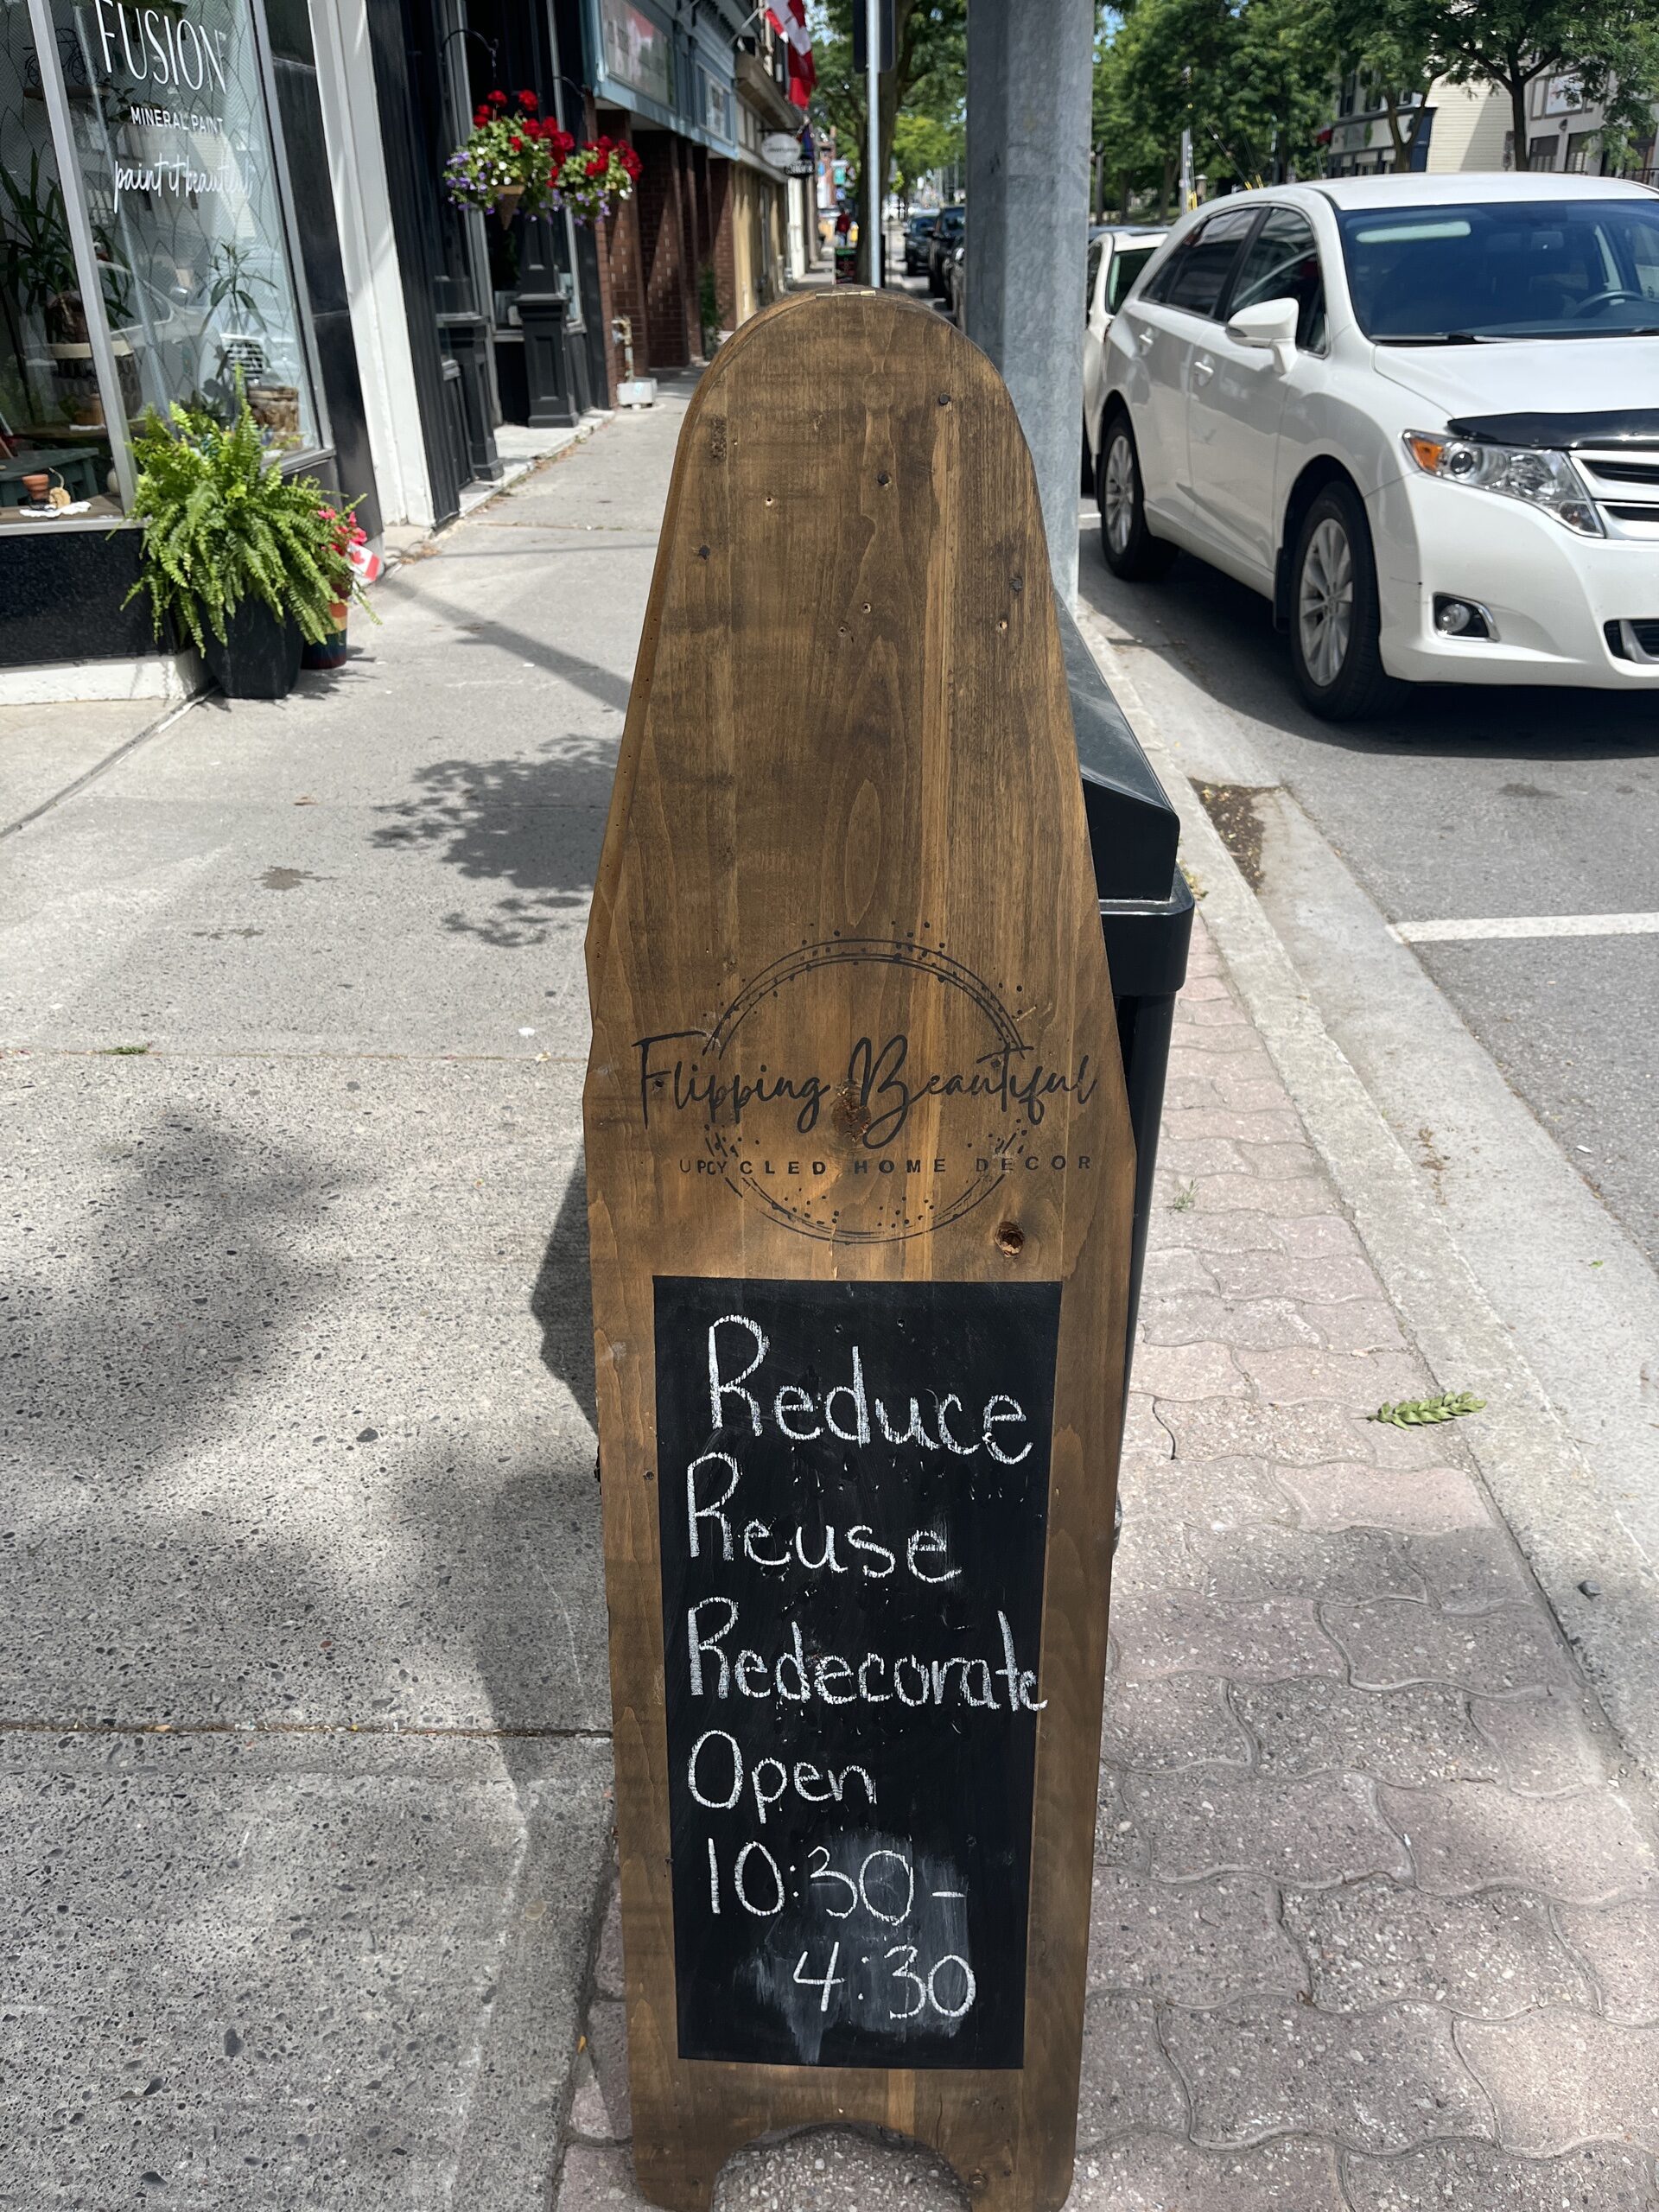 FUSION
MINERAL PAINT
paint it beautiful
Flipping Beautiful
UPCYCLED HOME DECOR
Reduce
Reuse
Redecorate
Open
10:30-
4:30